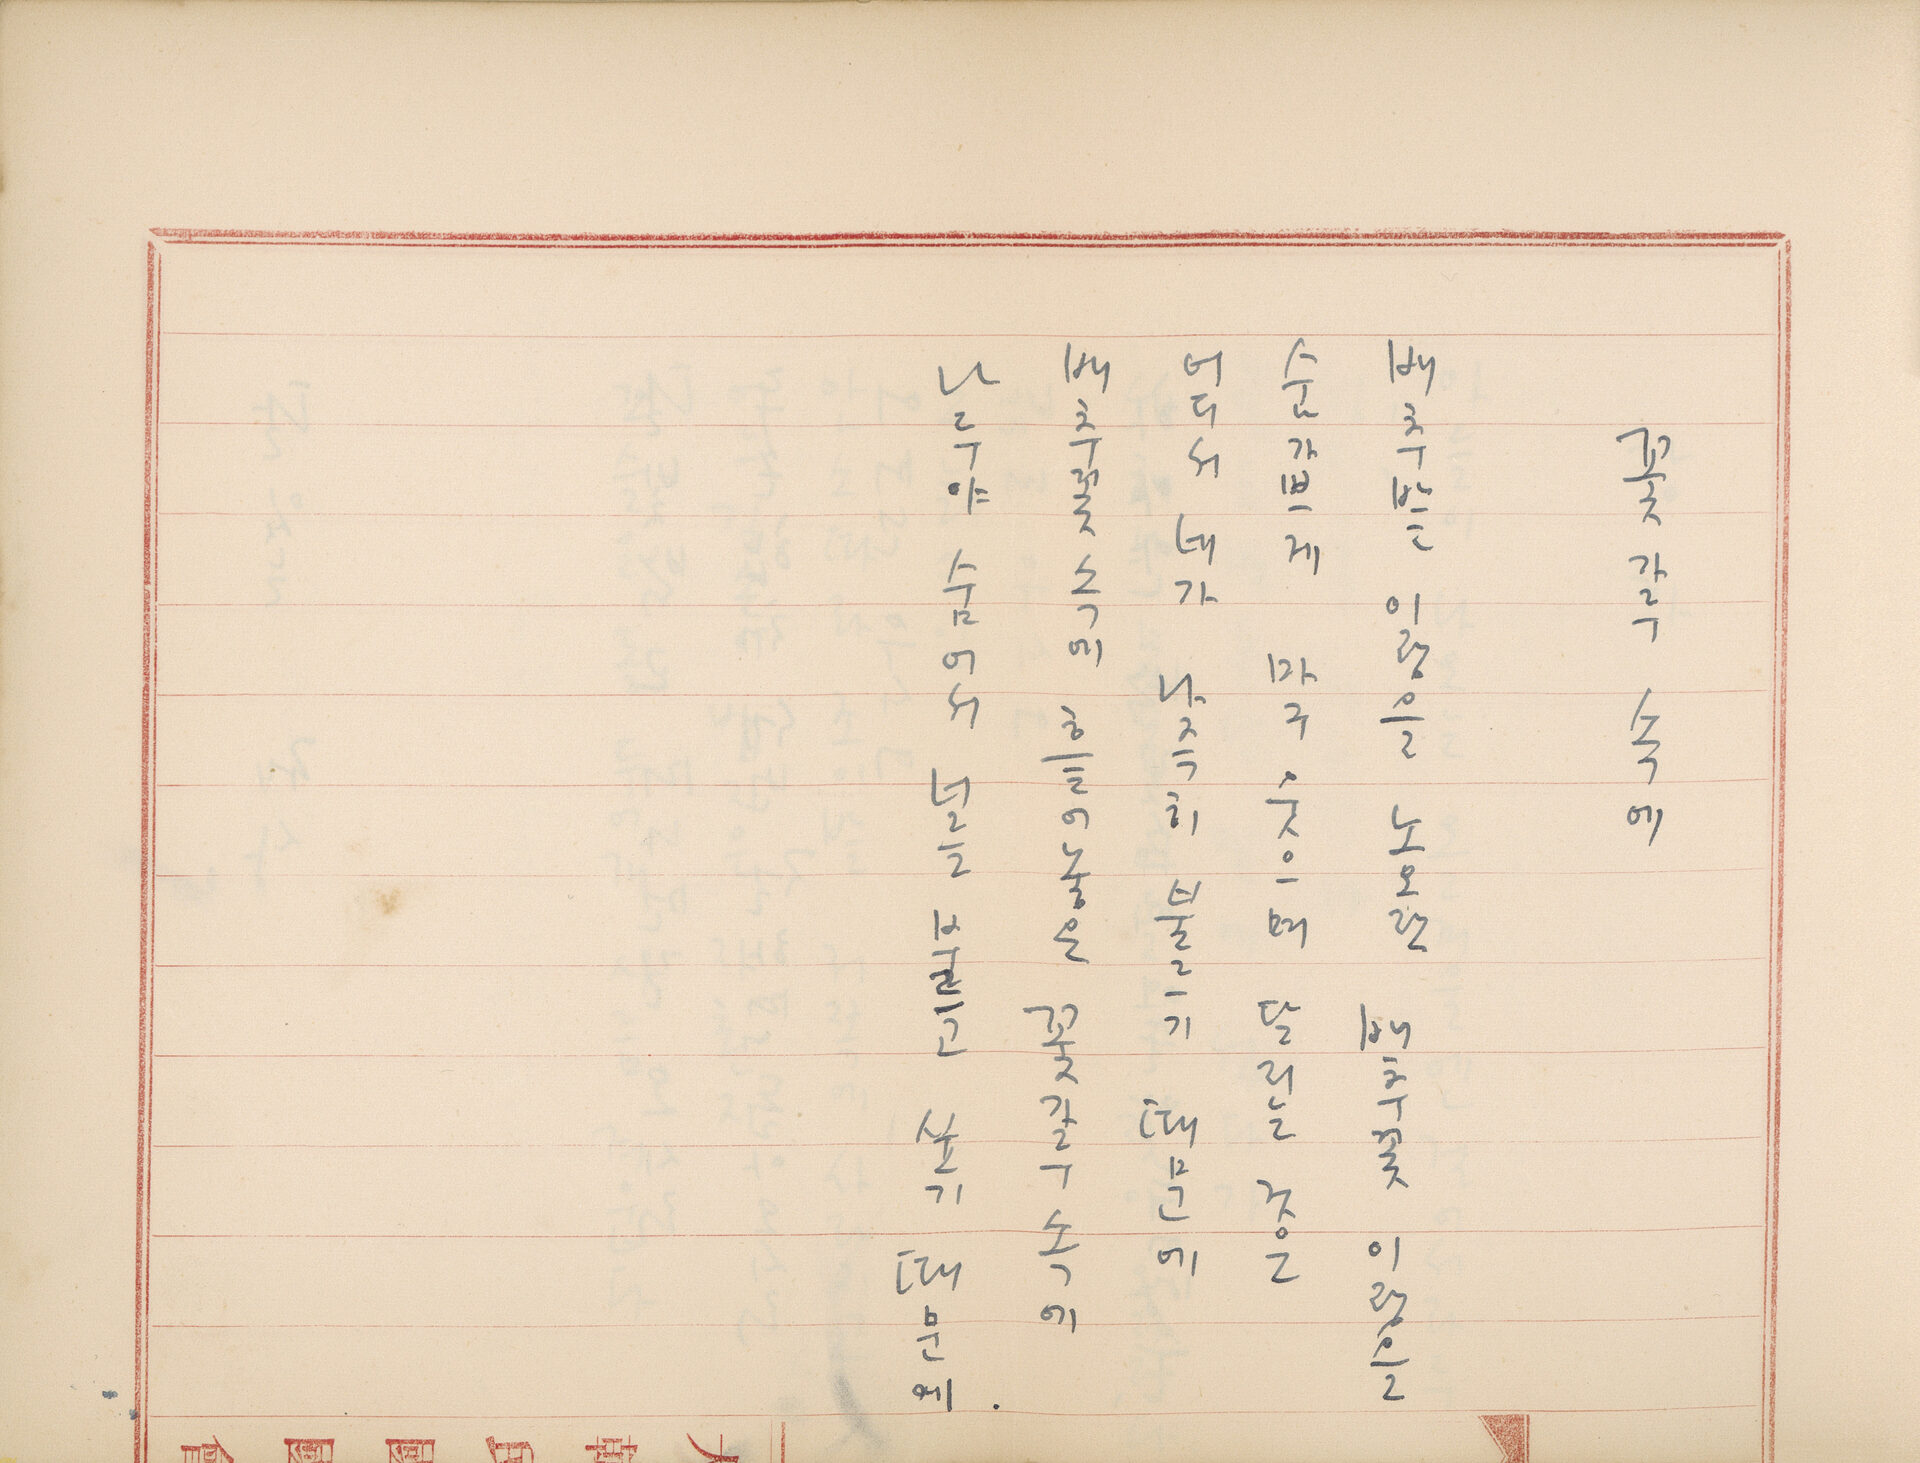 꽃가루 속에
배추밭 이랑을 노오란 배추꽃 이랑을
숨가쁘게 마구 웃으며 달리는
어디서 네가 나즉히 불르기 때문에
배추꽃 속에 꽃가루 속에
나두야 숨어서 너를 부르고 싶기 때문에.
大韓民國國會